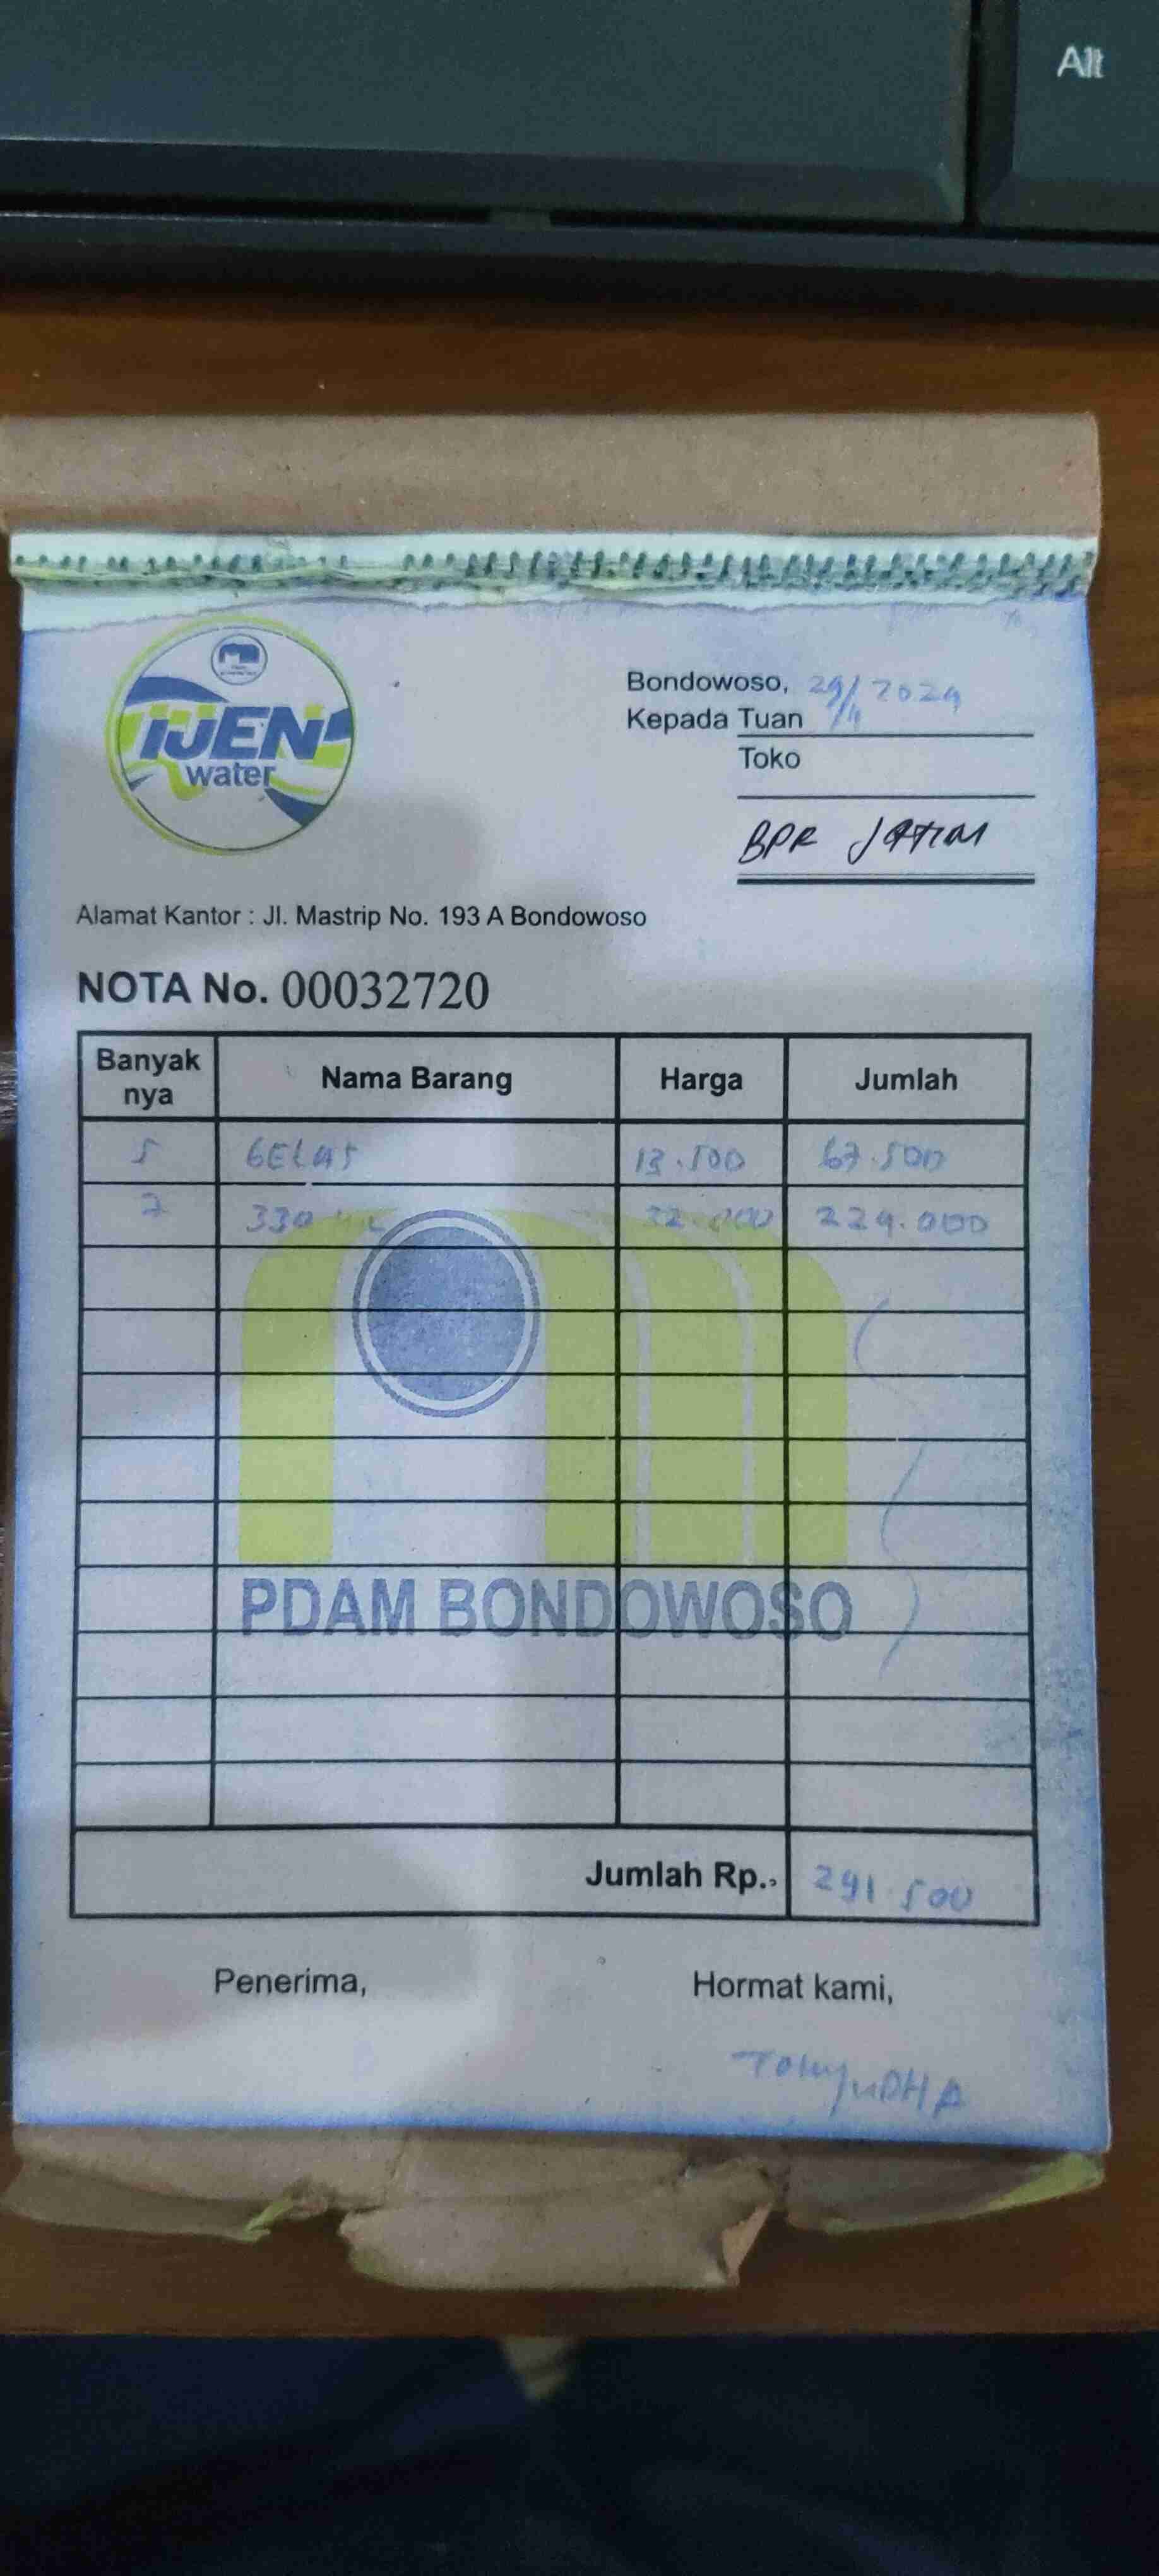 Alt
IJEN
water
Bondowoso, 29/11 2024
Kepada Tuan
Toko
BPR JATIM
Alamat Kantor : Jl. Mastrip No. 193 A Bondowoso
NOTA No. 00032720
Banyak nya Nama Barang Harga Jumlah
5 GELAS 13.500 67.500
7 330 ML 32.000 224.000
PDAM BONDOWOSO
Jumlah Rp.. 291.500
Penerima, Hormat kami,